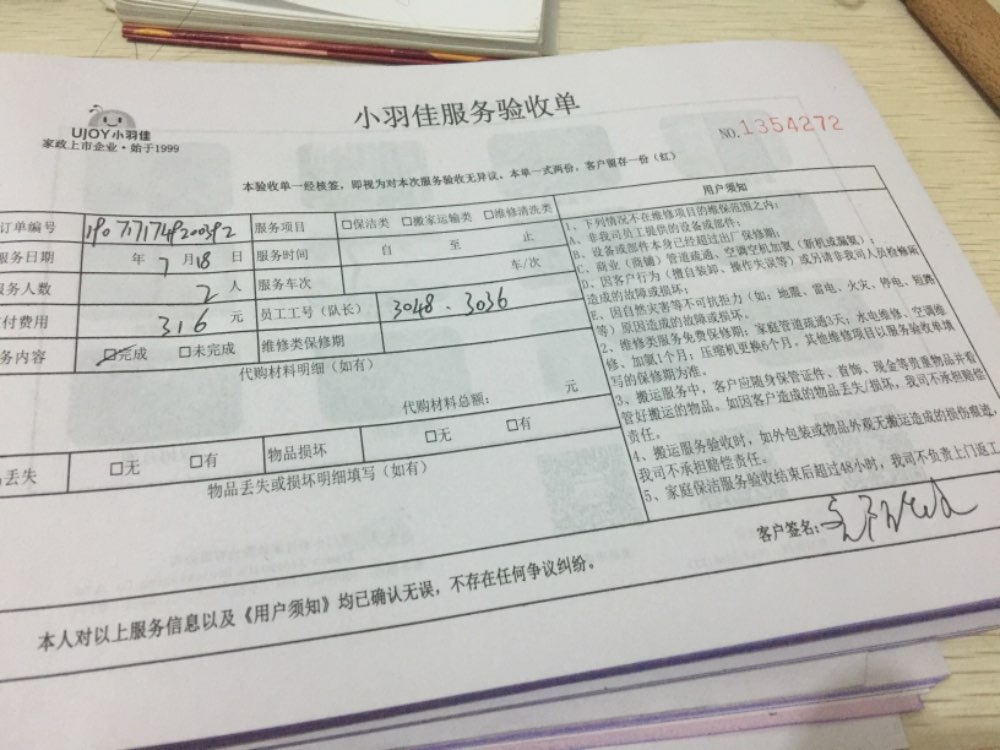 小羽佳服务验收单
UJOY小羽佳
家政上市企业·始于1999
NO.1354272
本验收单一经核签，即视为对本次服务验收无异议、本单一式两份，客户留存一份（红）
订单编号
服务项目 □保洁类 □搬家运输类 □维修清洗类
服务日期 年 7 月 18 日 服务时间 自 至 止
服务人数 2 人 服务车次 车/次
付费用 316 元 员工工号（队长） 3048、3036
务内容 □完成 □未完成 维修类保修期
代购材料明细（如有）
代购材料总额： 元
丢失 □无 □有 物品损坏 □无 □有
物品丢失或损坏明细填写（如有）
用户须知
1、下列情况不在维修项目的维保范围之内：
A、非我司员工提供的设备或部件；
B、设备或部件本身已经超过出厂保修期；
C、商业（商铺）管道疏通、空调空机加氨（新机或漏氟）；
D、因客户行为（擅自装卸、操作失误等）或另请非我司人员检修所
造成的故障或损坏；
E、因自然灾害等不可抗拒力（如：地震、雷电、火灾、停电、短路
等）原因造成的故障或损坏。
2、维修类服务免费保修期：家庭管道疏通3天；水电维修、空调维
修、加氨1个月；压缩机更换6个月。其他维修项目以服务验收单填
写的保修期为准。
3、搬运服务中，客户应随身保管证件、首饰、现金等贵重物品并看
管好搬运的物品。如因客户造成的物品丢失/损坏，我司不承担赔偿
责任。
4、搬运服务验收时，如外包装或物品外观无搬运造成的损伤痕迹，
我司不承担赔偿责任。
5、家庭保洁服务验收结束后超过48小时，我司不负责上门返工
客户签名：
本人对以上服务信息以及《用户须知》均已确认无误，不存在任何争议纠纷。